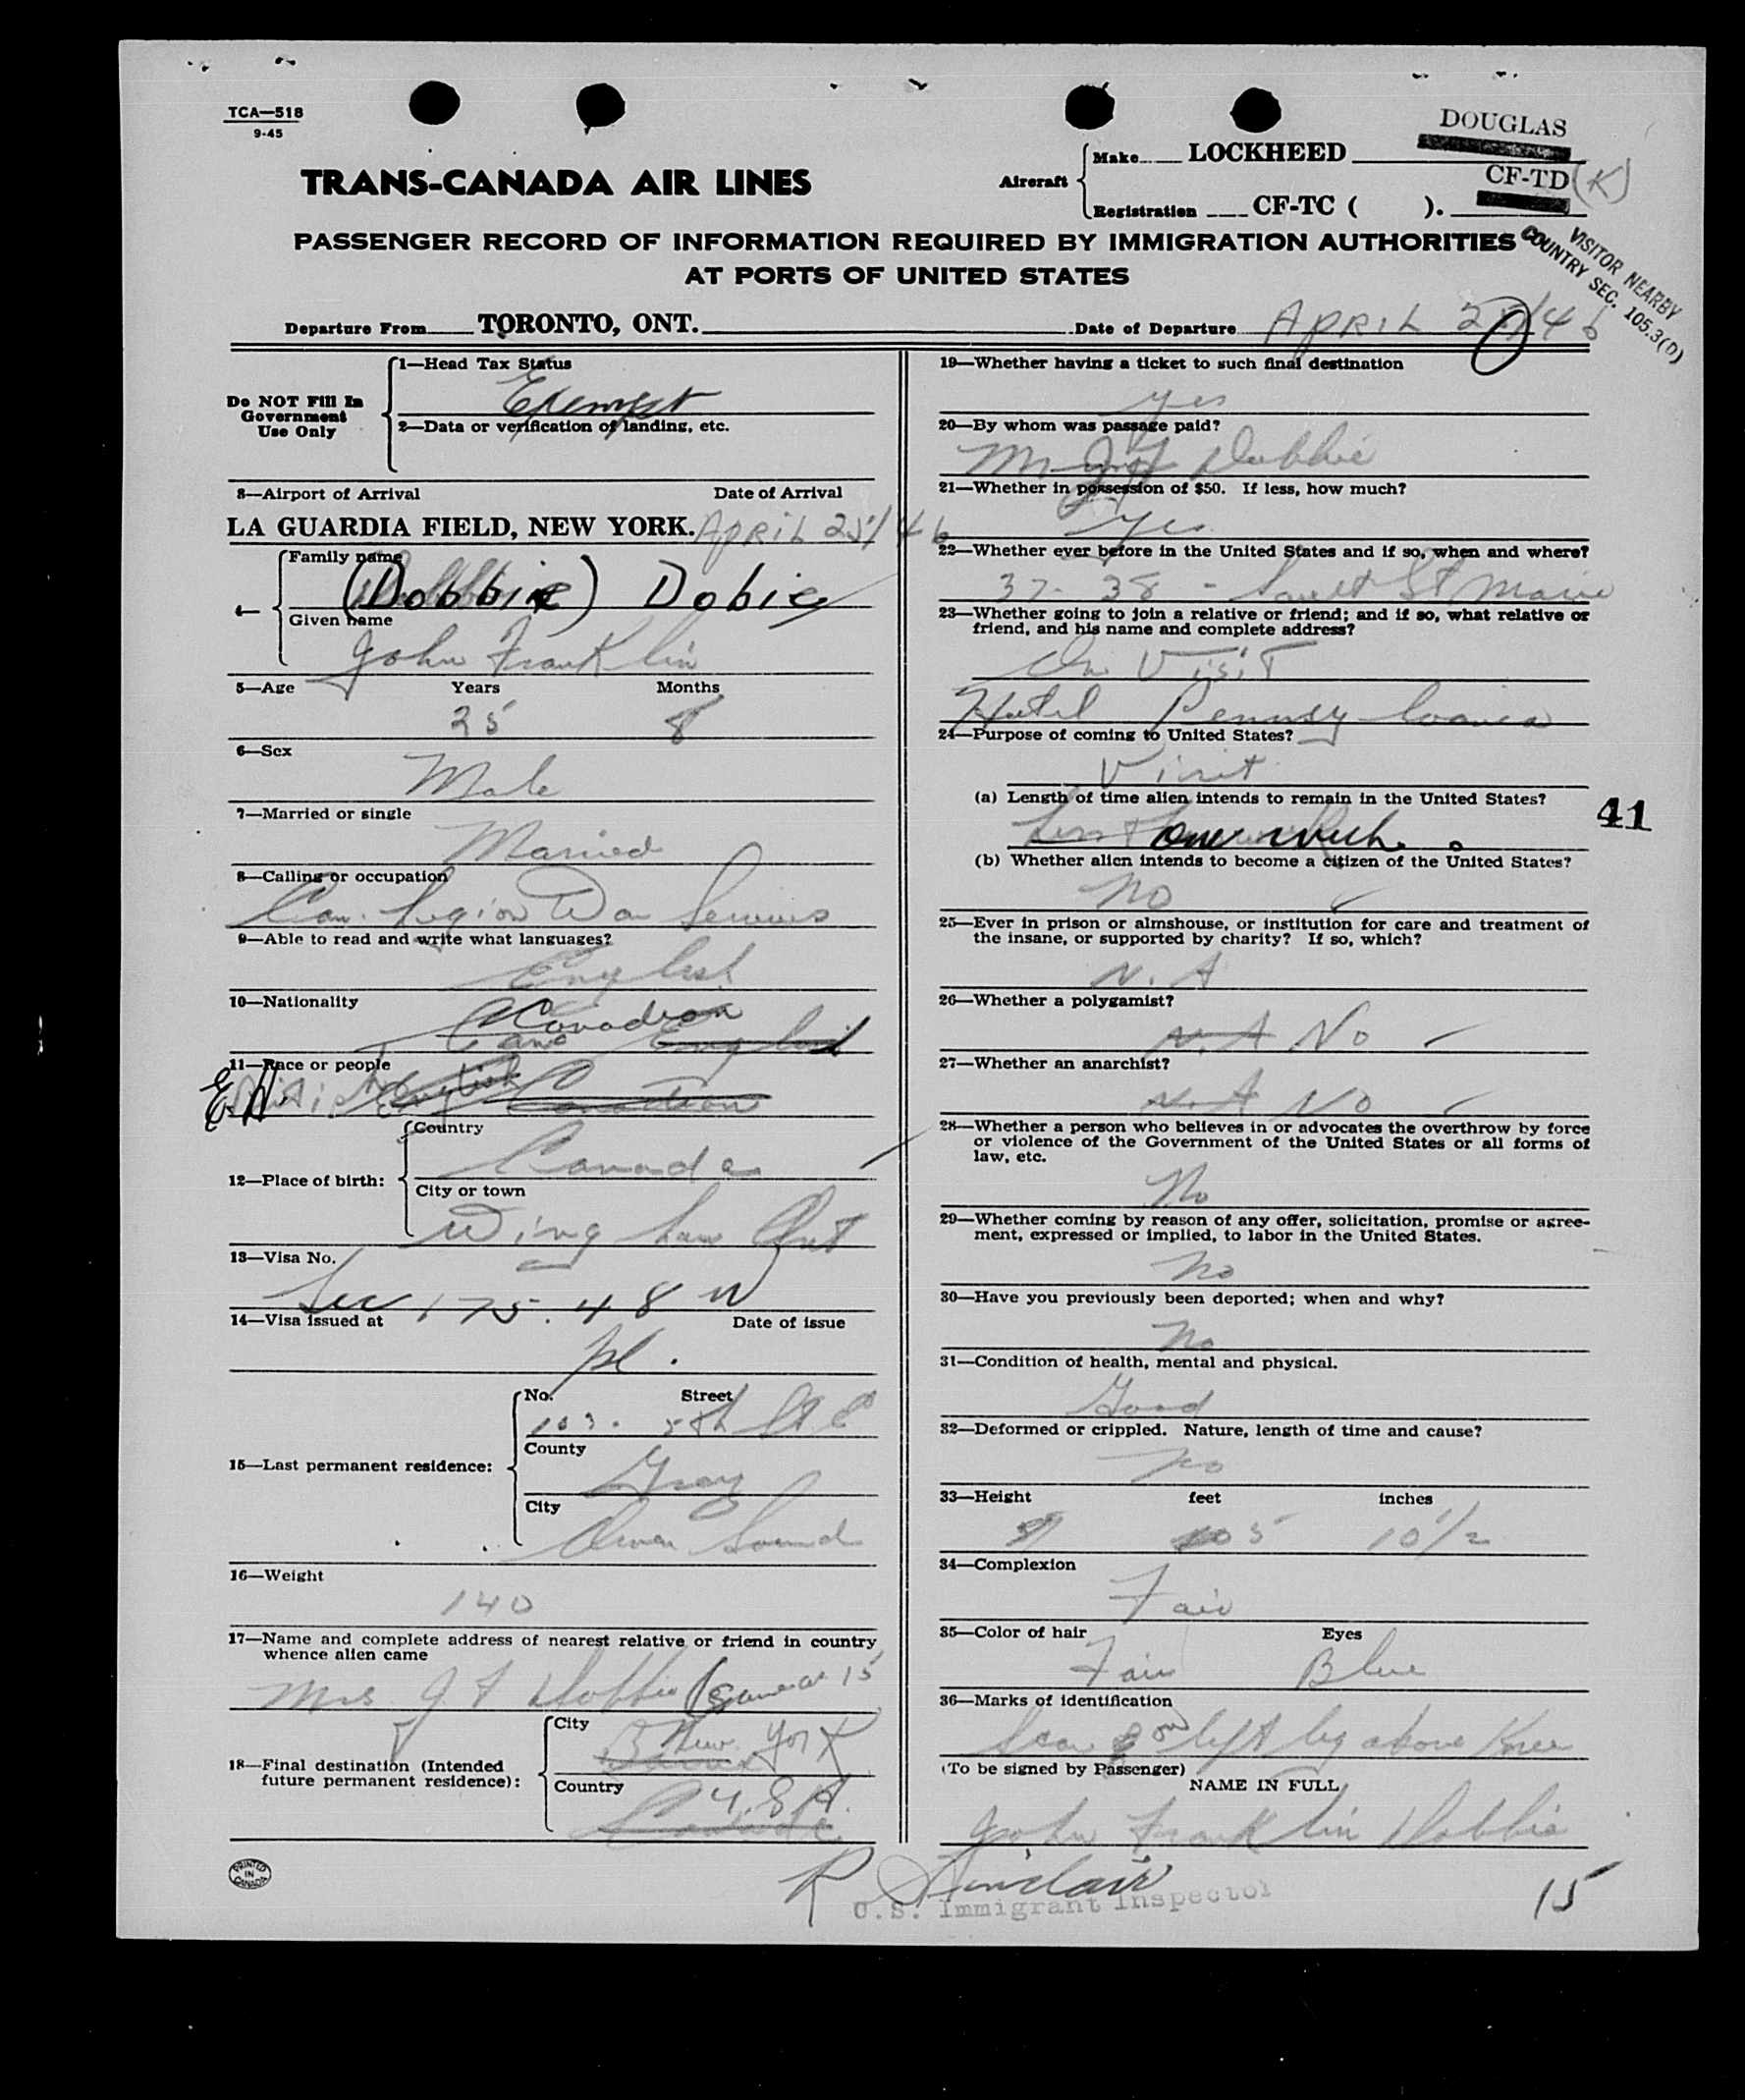 TCA—518
9-45
DOUGLAS
TRANS-CANADA AIR LINES
Aircraft
Make LOCKHEED
CF-TD (K)
Registration CF-TC ( ).
PASSENGER RECORD OF INFORMATION REQUIRED BY IMMIGRATION AUTHORITIES
AT PORTS OF UNITED STATES
VISITOR NEARBY
COUNTRY SEC. 105.3(D)
Departure From TORONTO, ONT. Date of Departure APRIL 25/46
Do NOT Fill In
Government
Use Only
1—Head Tax Status
Exempt
2—Data or verification of landing, etc.
3—Airport of Arrival Date of Arrival
LA GUARDIA FIELD, NEW YORK. APRIL 25/46
4—
Family name
(Dobbie) Dobie
Given name
John Franklin
5—Age Years Months
25 8
6—Sex
Male
7—Married or single
Married
8—Calling or occupation
Can. Legion War Services
9—Able to read and write what languages?
English
10—Nationality
Canadian
11—Race or people
English
12—Place of birth:
Country
Canada
City or town
Wingham Ont
13—Visa No.
Sec 175.48
14—Visa issued at Date of issue
15—Last permanent residence:
No. Street
103. 5th St E
County
Gray
City
Owen Sound
16—Weight
140
17—Name and complete address of nearest relative or friend in country
whence alien came
Mrs J F Dobbie (Same as 15
18—Final destination (Intended
future permanent residence):
City
New York
Country
U.S.A.
PRINTED
IN
CANADA
19—Whether having a ticket to such final destination
yes
20—By whom was passage paid?
Mr J F Dobbie
21—Whether in possession of $50. If less, how much?
yes
22—Whether ever before in the United States and if so, when and where?
37-38 - Sault St Marie
23—Whether going to join a relative or friend; and if so, what relative or
friend, and his name and complete address?
On Visit
Hotel Pennsylvania
24—Purpose of coming to United States?
Visit
(a) Length of time alien intends to remain in the United States?
one week
41
(b) Whether alien intends to become a citizen of the United States?
No
25—Ever in prison or almshouse, or institution for care and treatment of
the insane, or supported by charity? If so, which?
N.A
26—Whether a polygamist?
N.A No
27—Whether an anarchist?
N.A No
28—Whether a person who believes in or advocates the overthrow by force
or violence of the Government of the United States or all forms of
law, etc.
No
29—Whether coming by reason of any offer, solicitation, promise or agree-
ment, expressed or implied, to labor in the United States.
No
30—Have you previously been deported; when and why?
No
31—Condition of health, mental and physical.
Good
32—Deformed or crippled. Nature, length of time and cause?
No
33—Height feet inches
5 10 1/2
34—Complexion
Fair
35—Color of hair Eyes
Fair Blue
36—Marks of identification
Scar on left leg above Knee
(To be signed by Passenger)
NAME IN FULL
John Franklin Dobbie
R Sinclair
U.S. Immigrant Inspector
15